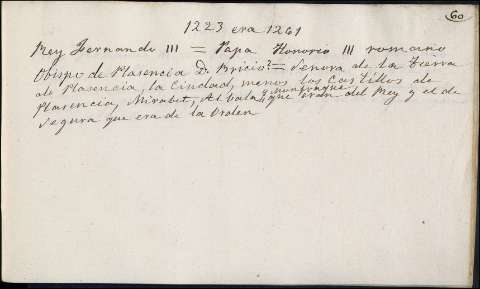 60
1223 era 1261
Rey Fernando III = Papa Honorio III romano
Obispo de Plasencia D. Bricio? = Senora de la Tierra
de Plasencia, la Ciudad, menos los Castillos de
Plasencia, Mirabel, Albala y monfrague que eran del Rey y el de
Segura que era de la Orden